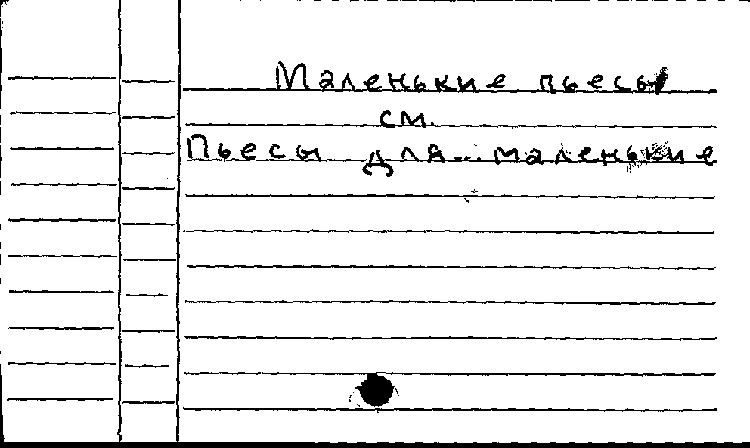 Маленькие пьесы
см.
Пьесы для... маленькие